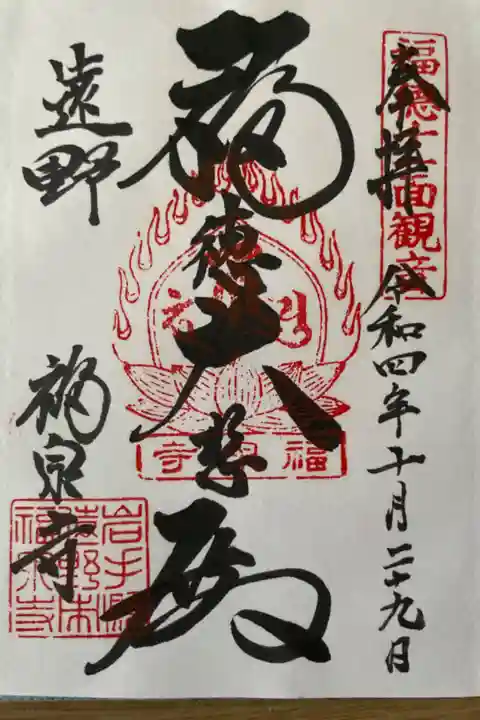 奉拝 令和四年十月二十九日
福徳十一面観音
福徳大悲殿
福泉寺
遠野
福泉寺
岩手県
遠野市
福泉寺